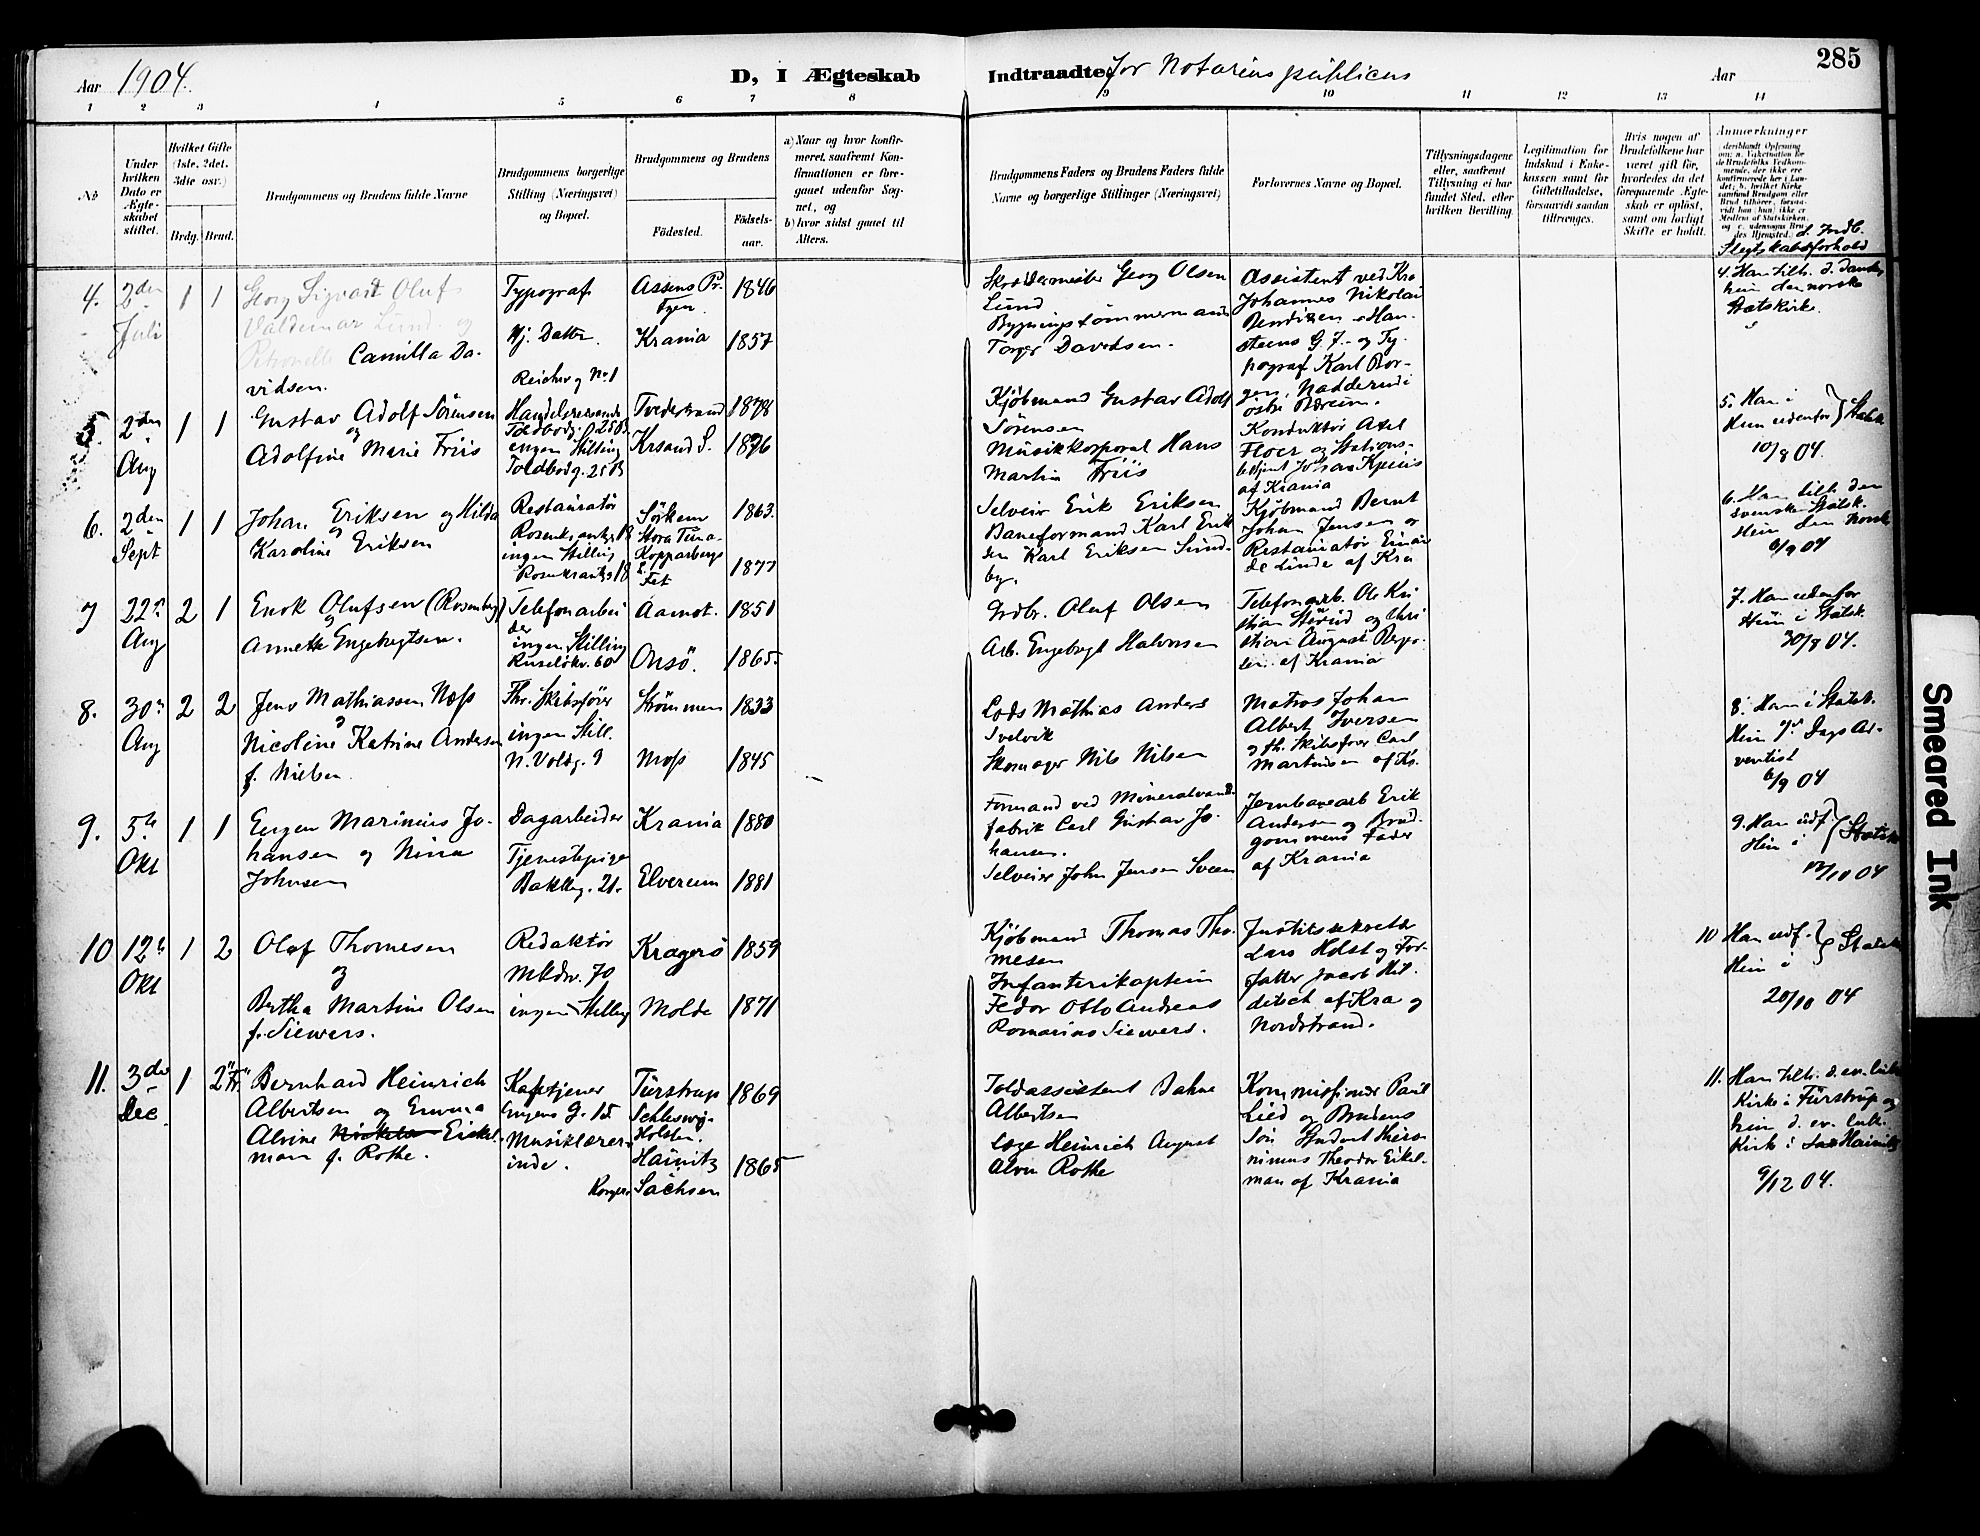 285
Aar 1904.
D, I Ægteskab Indtraadte for Notarius publicus
Aar
1 2 3 4 5 6 7 8 9 10 11 12 13 14
No
Under
hvilken
Dato er
Ægte-
skabet
stiftet.
Hvilket Gifte
(1ste, 2det,
3die osv.)
Brdg. Brud.
Brudgommens og Brudens fulde Navne
Brudgommens borgerlige
Stilling (Næringsvei)
og Bopæl.
Brudgommens og Brudens
Födested.
Födsels-
aar.
a) Naar og hvor konfir-
meret, saafremt Kon-
firmationen er fore-
gaaet udenför Sog-
net, og
b) hvor sidst gaaet til
Alters.
Brudgommens Faders og Brudens Faders fulde
Navne og borgerlige Stillinger (Næringsvei)
Forlovernes Navne og Bopæl.
Tillysningsdagene
eller, saafremt
Tillysning ei har
fundet Sted, efter
hvilken Bevilling.
Legitimation for
Indskud i Enke-
kassen samt for
Giftetilladelse,
forsaavidt saadan
tiltrænges.
Hvis nogen af
Brudefolkene har
været gift för,
hvorledes da det
foregaaende Ægte-
skab er oplöst,
samt om lovligt
Skifte er holdt.
Anmerkninger
deriblandt Oplysning
om: a. Vakcination for
de Brudefolks Vedkom-
mende, der ikke ere
konfirmerede her i Lan-
det; b. hvilket Kirke
samfund Brudgom eller
Brud tilhörer, forsaa-
vidt han (hun) ikke er
Medlem af Statskirken,
og c. udensogns Bru-
des Hjemsted. d. Indb.
Slegtskabsforhold
4. 2den Juli 1 1
Georg Sigvard Oluf
Valdemar Lund og
Petronelle Camilla Da-
vidsen.
Typograf
Hj. Datter
No 1
Assens Pr.
Fyen.
Krania
1846
1857
Skræddermester Georg Olsen
Lund
Bygningstömmermand
Torger Davidsen.
Assistent ved Kra
Johannes Nikolai
Bendixen Han-
steens G. 7 og Ty-
pograf Karl Bor-
gen, Nadderud i
östre Bærum.
4. Han tilh. d. danske
hun den norske
Statskirke.
5. 2den Aug 1 1
Gustav Adolf Sörensen
og
Adolfine Marie Friis
Handelsreisende
Toldbodg. 25 B
ingen Stilling
Toldbodg. 25 B
Tvedestrand
Krsand S.
1878
1876
Kjöbmand Gustav Adolf
Sörensen
Musikkorporal Hans
Martin Friis
Konduktör Axel
Floer og Stations-
betjent Johan
af Krania
5. Han i
Hun udenfor } Statsk
10/8 04.
6. 2den Sept 1 1
Johan Eriksen og Hilda
Karoline Eriksen
Restauratör
Rosenkrantzg. 18
ingen Stilling
Rosenkrantzg 18
Stora Tuna
Kopparbergs
L.
Fet
1863.
1877
Selveier Erik Eriksen
Baneformand Karl Erik
sen Karl Eriksen Sund-
by.
Kjöbmand Bernt
Johan Jensen og
Restauratör Einar
de Linde af Kra
6. Han tilh den
svenske Statsk.
Hun den Norsk
6/9 04
7 22de Aug 2 1
Enok Olufsen (Rosenberg)
og
Annette Engebregtsen.
Telefonarbei
der
ingen Stilling
Ruselökv. 60
Aamot.
Onsö.
1851
1865
Grdbr. Oluf Olsen
Arb. Engebregt Halvorsen
Telefonarb. Ole Kri
stian Störud og Chri
stian August Berge-
sen af Krania
7. Han udenfor
Hun i Statsk.
30/8 04.
8. 30te Aug 2 2
Jens Mathiassen Næss
og
Nicoline Katrine Andersen
f. Nielsen
Fhv. Skibsförer
ingen Still.
N. Voldg. 9
Strömmen
Moss
1833
1845
Lods Mathias Anders
Svelvik
Skomager Nils Nilsen
Matros Johan
Albert Iversen
og fh. Skibsförer Carl
Martinsen af Kr.
8. Han i Statsk.
Hun 7de Dags Ad-
ventist
6/9 04
9. 5te Okt 1 1
Eugen Marinius Jo-
hansen og Nina
Johnsen
Dagarbeider
Tjenestepige
Bakkeg. 21.
Krania
Elverum
1880
1881
Formand ved Mineralvand
fabrik Carl Gustav Jo-
hansen.
Selveier John Jensen Sveen
Jernbanearb Erik
Andersen og Brud-
gommens Fader
af Krania
9. Han udf
Hun i } Statsk
12/10 04
10 12te Okt 1 2
Olaf Thomesen
og
Bertha Martine Olsen
f. Siewers.
Redaktör
Mkdsv. 70
ingen Stilling
Kragerö
Molde
1859
1871
Kjöbmand Thomas Tho-
mesen
Infanterikaptein
Fedor Otto Andreas
Romarino Siewers.
Justitssekretær
Lars Holst og For-
fatter Jacob Hil-
ditch af Kra og
Nordstrand.
10 Han udf.
Hun i } Statsk
20/10 04
11. 3die Dec. 1 2 "Fr"
Bernhard Heinrich
Albertsen og Emma
Alvine Eickel-
man f. Rothe.
Kafetjener
Eugens G. 15
Musiklærer-
inde.
Türstrup
Schleswig-
Holsten.
Hainitz
Kongr. Sachsen
1869
1865
Toldassistent Dahne
Albertsen
Loge Heinrich August
Alvin Rothe
Kommissionær Paul
Lied og Brudens
Sön Student Hiero
nimus Theodor Eikel-
man af Krania
11. Han tilh. d. ev. luth
Kirke i Türstrup og
hun d. ev. luth.
Kirk i Hainitz
9/12 04.
Smeared Ink